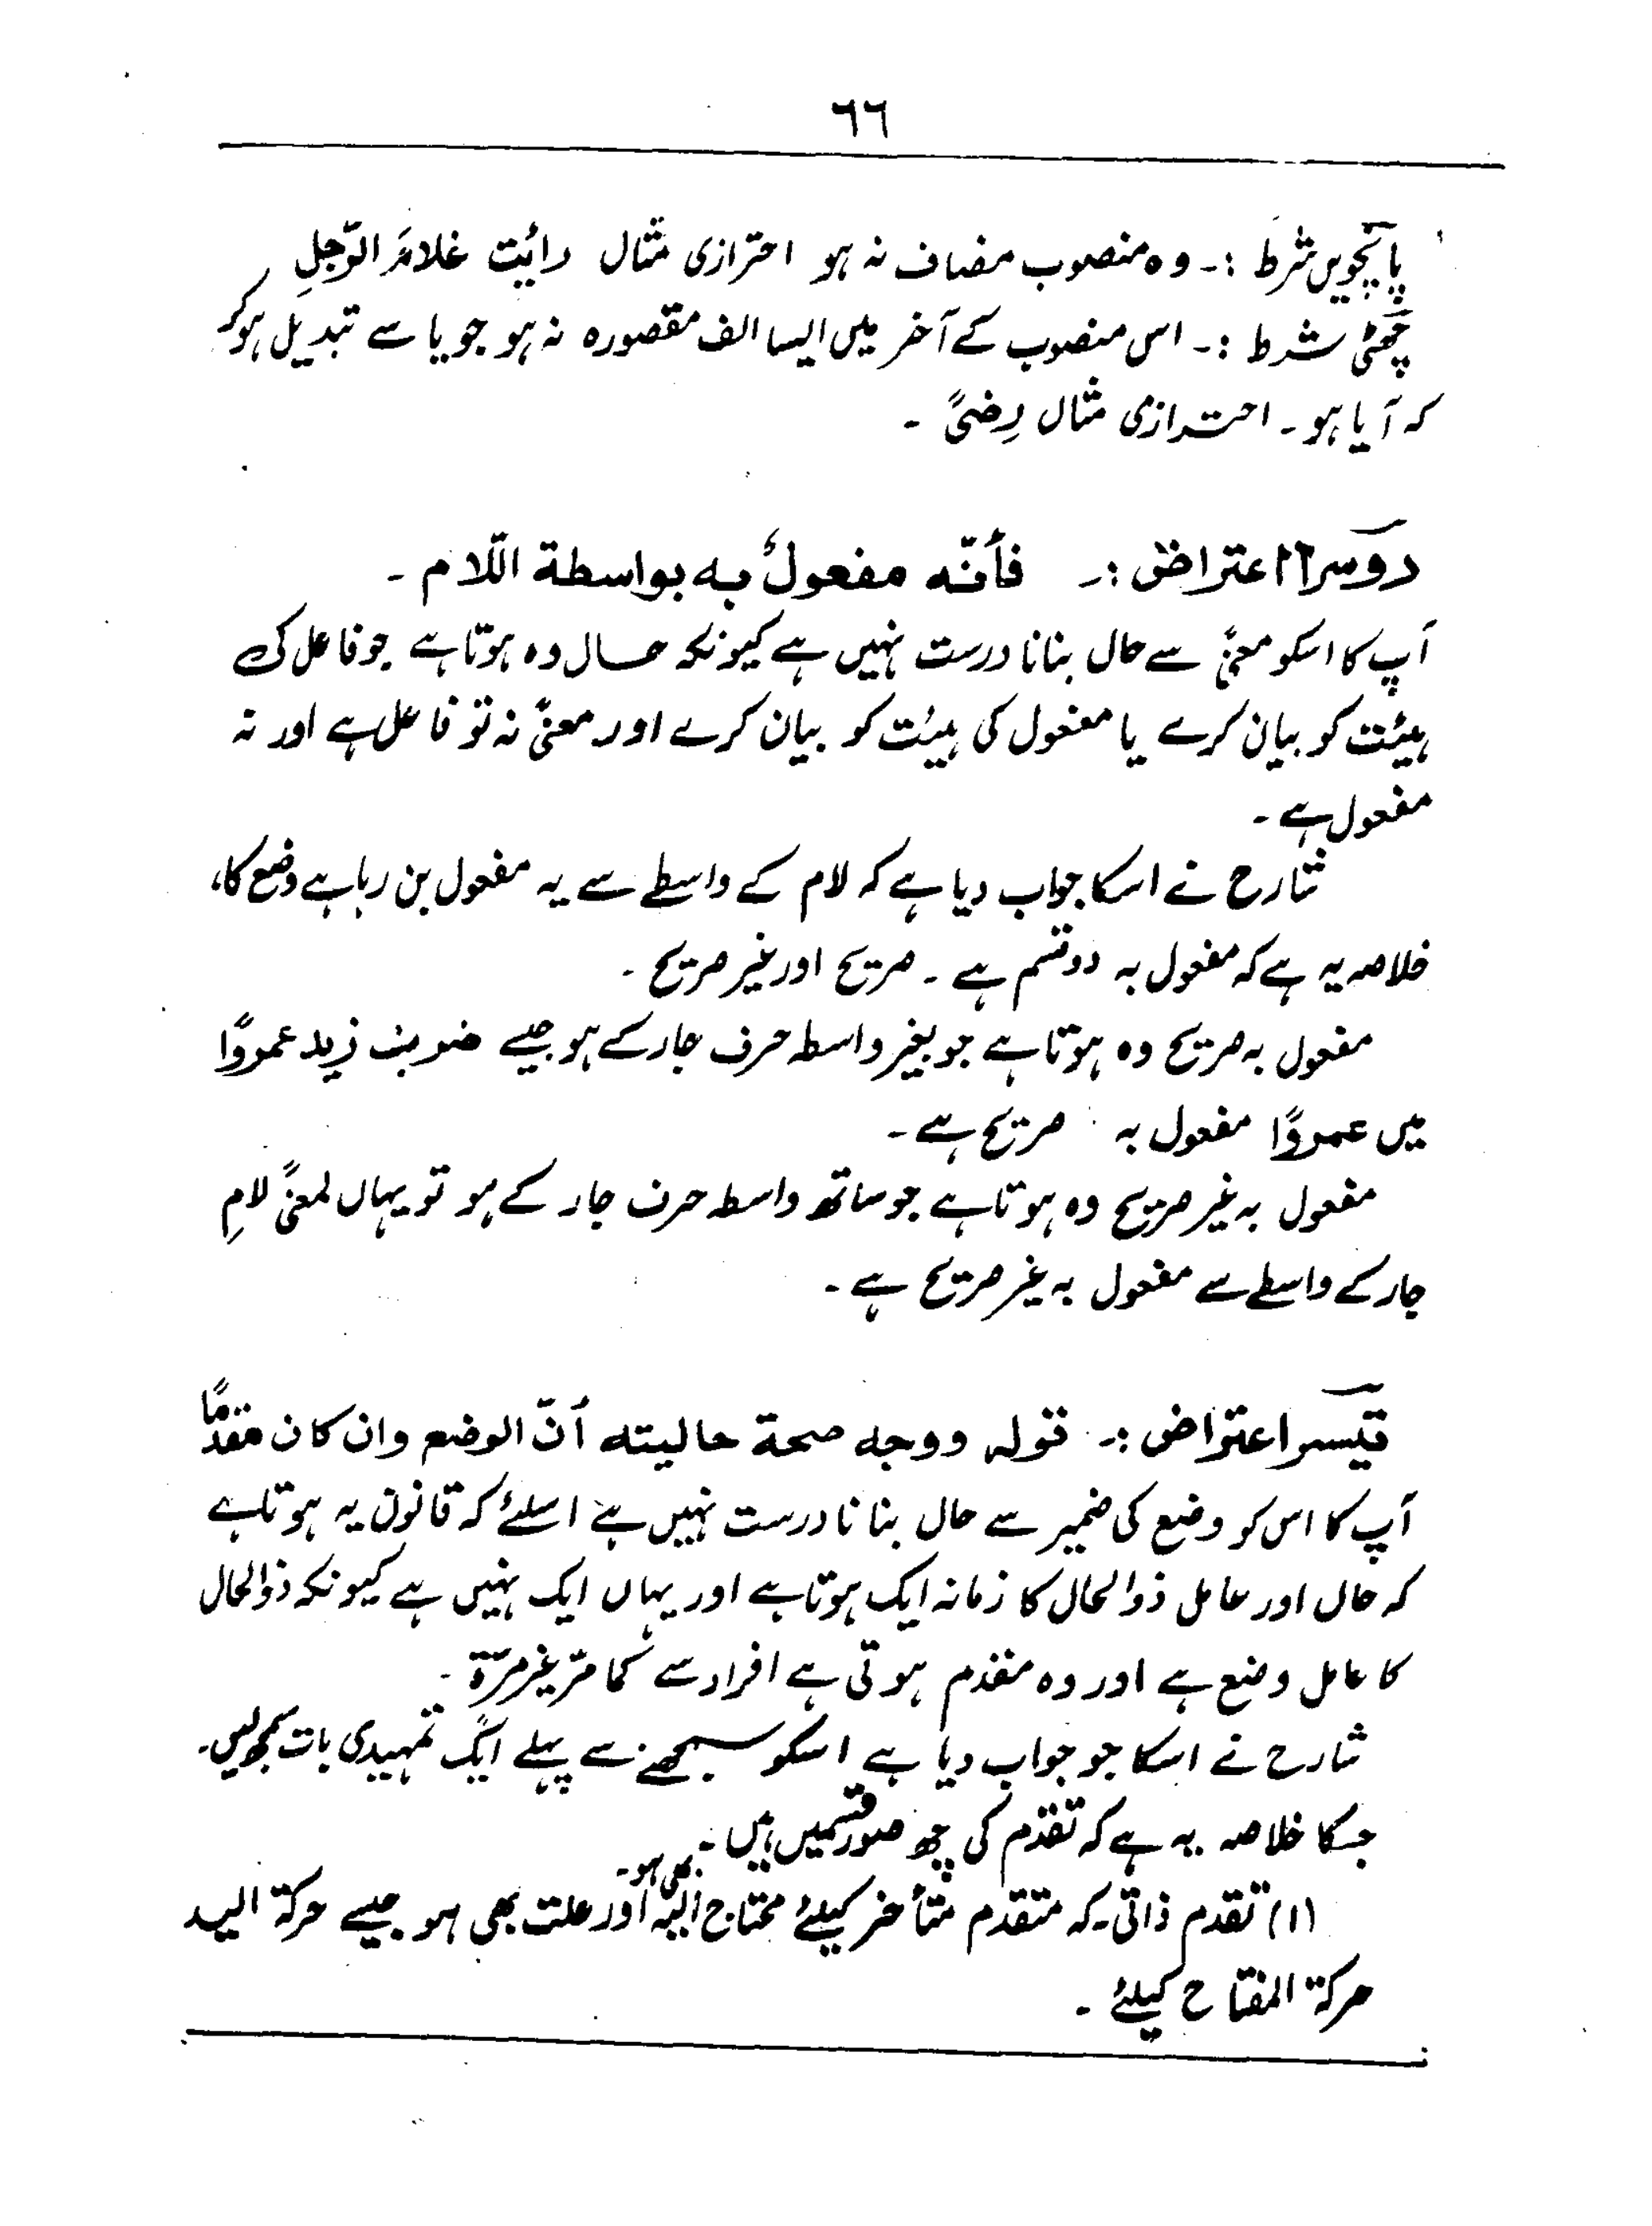 ٦٦
پانچویں شرط :۔ وہ منصوب مضاف نہ ہو احترازی مثال رائیت غلامَ الرّجلِ
چھٹی شرط :۔ اس منصوب کے آخر میں ایسا الف مقصورہ نہ ہو جو یا سے تبدیل ہو کر
کہ آیا ہو۔ احترازی مثال رِضیً ۔
دوسرا اعتراض :۔ فأنّہ مفعولٌ بہ بواسطة اللّام ۔
آپ کا اسکو معنیً سے حال بنانا درست نہیں ہے کیونکہ حال وہ ہوتا ہے جو فاعل کی
ہیئت کو بیان کرے یا مفعول کی ہیئت کو بیان کرے اور معنیً نہ تو فاعل ہے اور نہ
مفعول ہے ۔
شارح نے اسکا جواب دیا ہے کہ لام کے واسطے سے یہ مفعول بن رہا ہے وضع کا،
خلاصہ یہ ہے کہ مفعول بہ دو قسم ہے ۔ صریح اور غیر صریح ۔
مفعول بہ صریح وہ ہوتا ہے جو بغیر واسطہ حرف جار کے ہو جیسے ضربت زید عمروًا
میں عمروًا مفعول بہ صریح ہے ۔
مفعول بہ غیر صریح وہ ہوتا ہے جو ساتھ واسطہ حرف جار کے ہو تو یہاں لمعنیً لامِ
جار کے واسطے سے مفعول بہ غیر صریح ہے ۔
تیسرا اعتراض :۔ قولہ ووجہ صحة حالیته أنّ الوضع وان کان مقدمًا
آپ کا اس کو وضع کی ضمیر سے حال بنانا درست نہیں ہے اسلئے کہ قانون یہ ہوتا ہے
کہ حال اور عامل ذوالحال کا زمانہ ایک ہوتا ہے اور یہاں ایک نہیں ہے کیونکہ ذوالحال
کا عامل وضع ہے اور وہ مقدم ہوتی ہے افراد سے کما مرّ غیر مرّة ۔
شارح نے اسکا جو جواب دیا ہے اسکو سمجھنے سے پہلے ایک تمہیدی بات سمجھ لیں۔
جسکا خلاصہ یہ ہے کہ تقدم کی چھ صور قسمیں ہیں ۔
(۱) تقدم ذاتی۔کہ متقدم متأخر کیلئے محتاج الیہ بھی ہو۔ اور علت بھی ہو جیسے حرکة الید
حرکة المفتاح کیلئے ۔